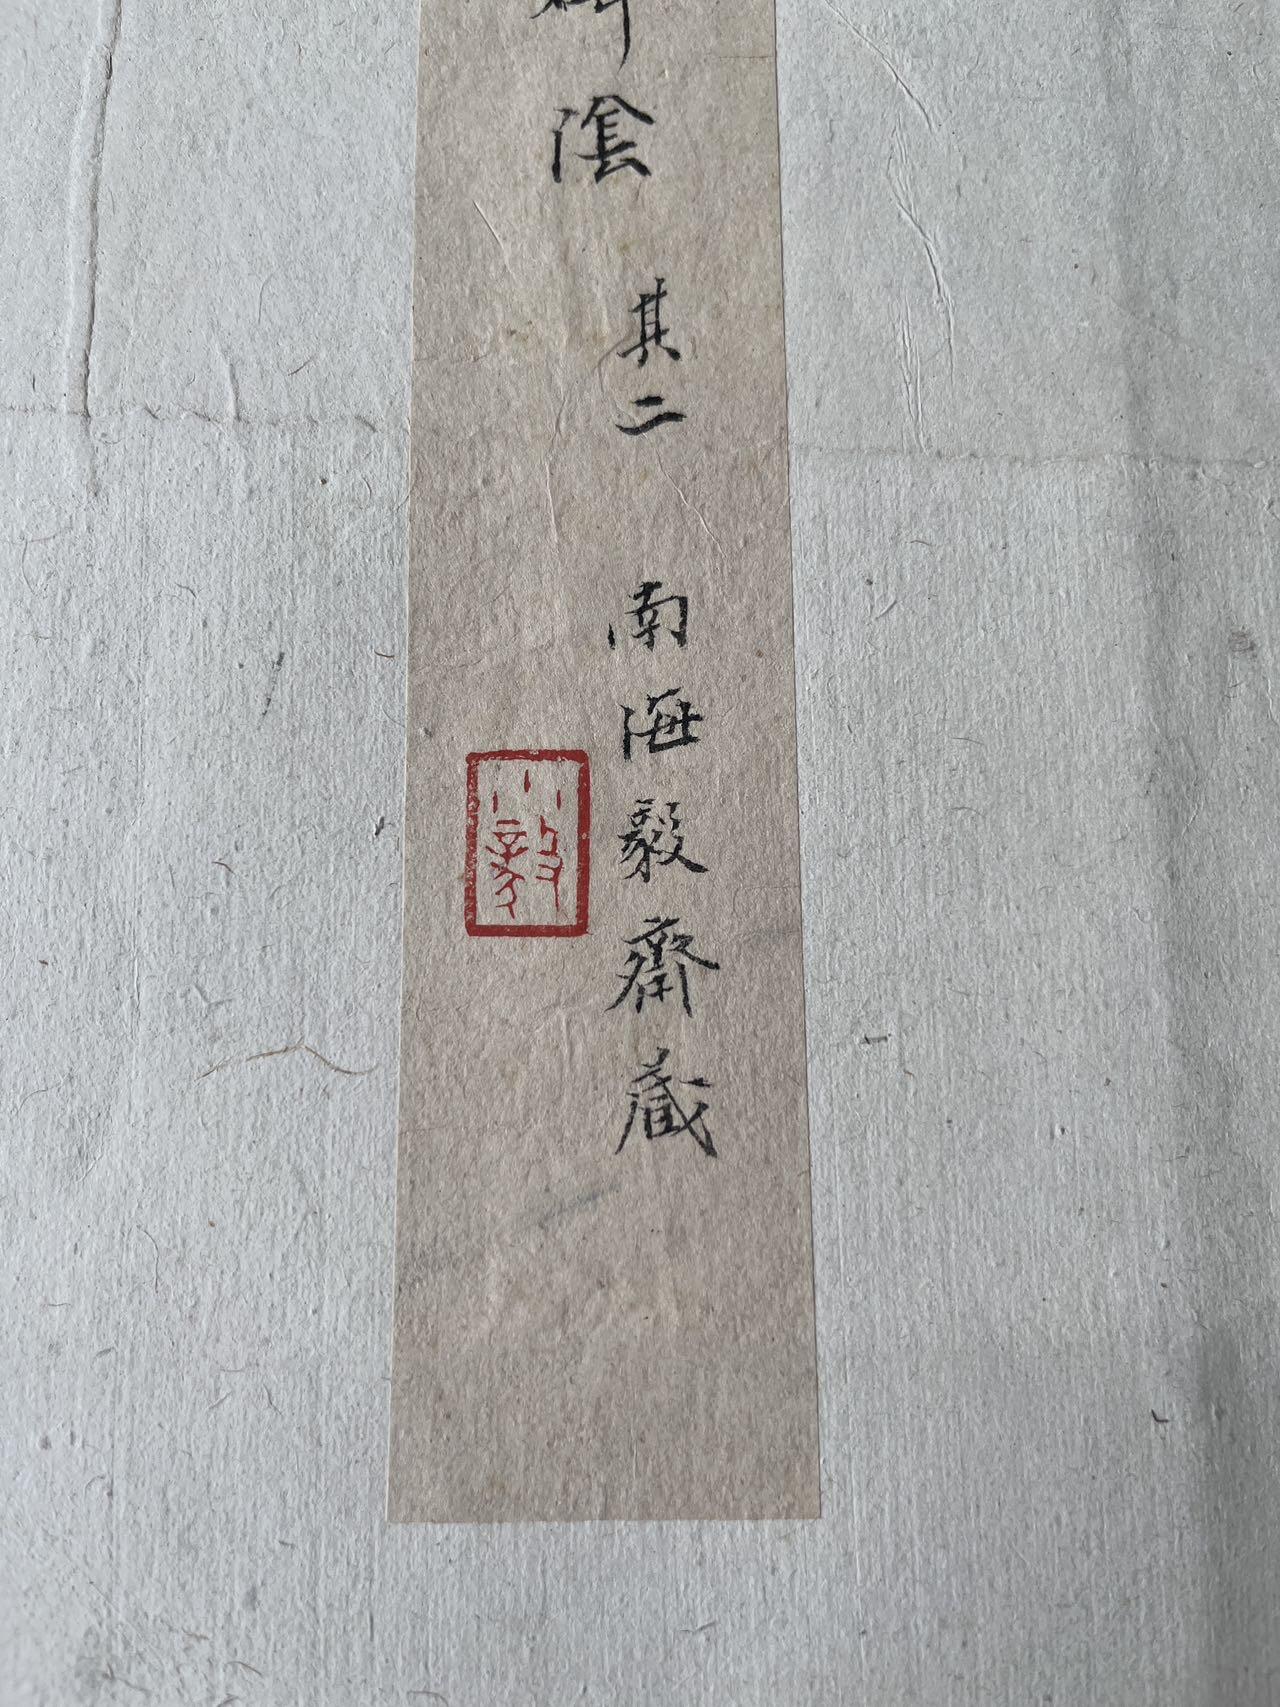 碑陰
其二
南海毅齋藏
小毅